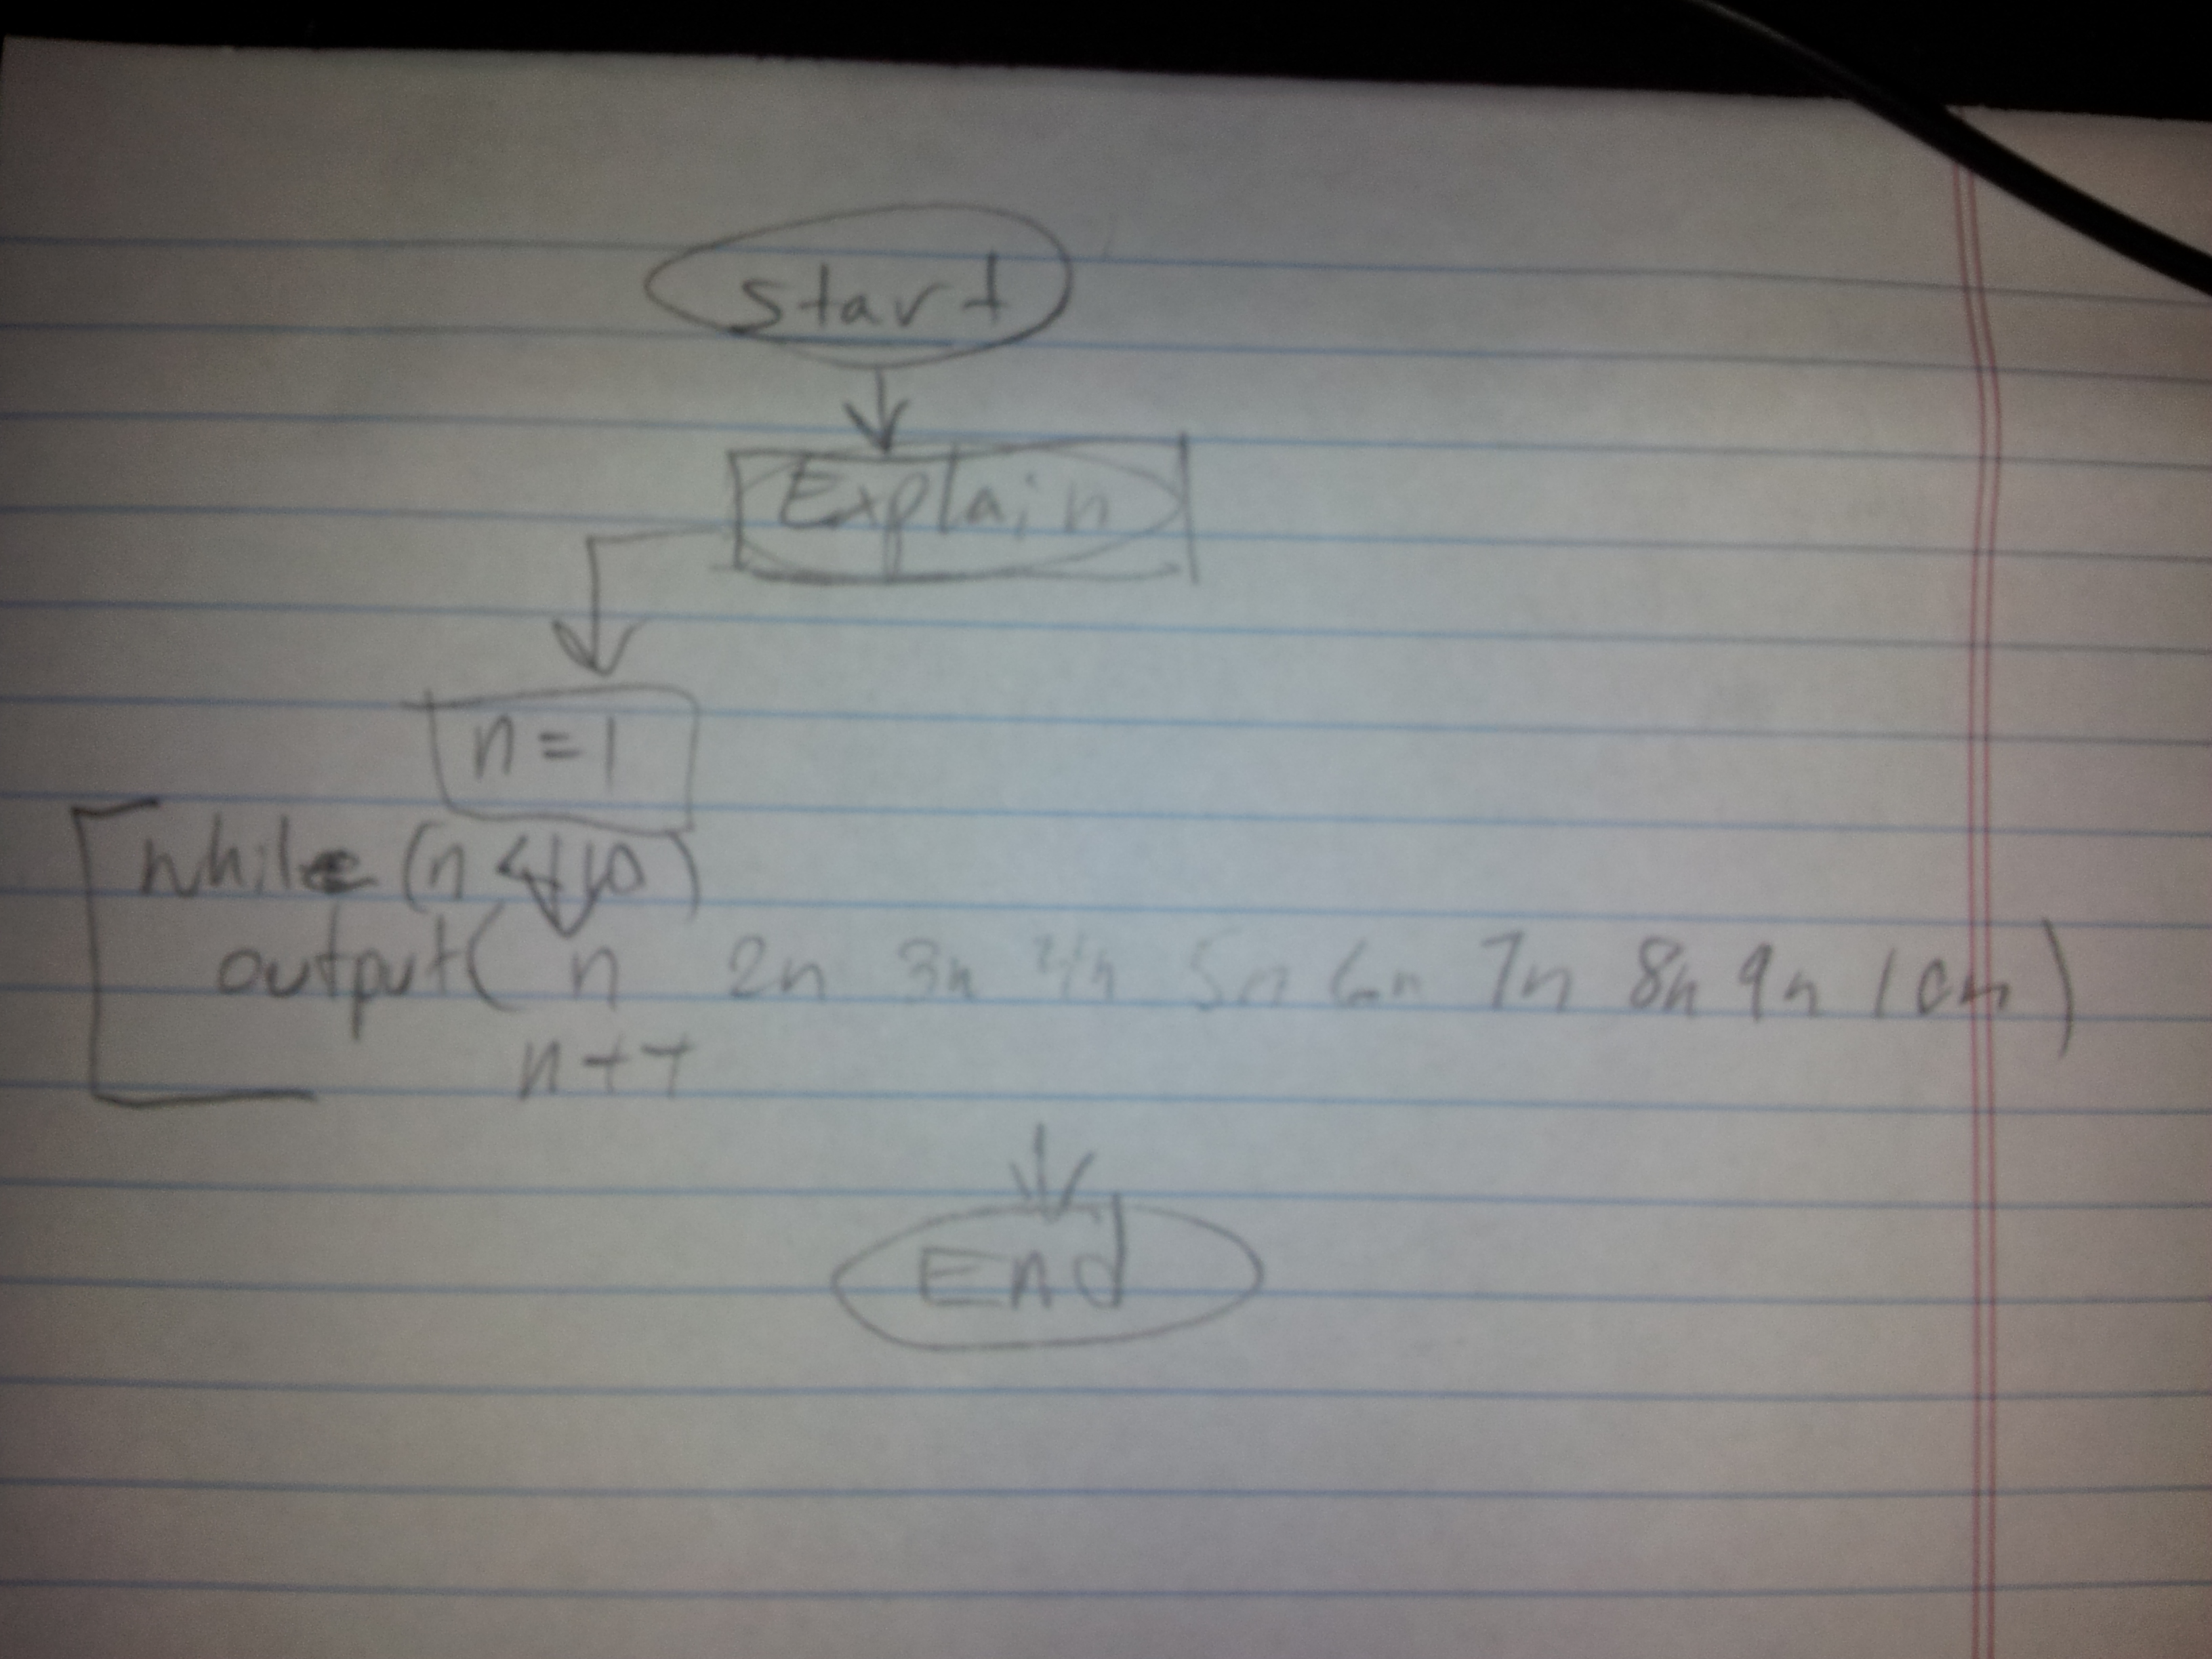 start
Explain
n=1
while (n < 10)
output( n 2n 3n 4n 5n 6n 7n 8n 9n 10n )
n++
End